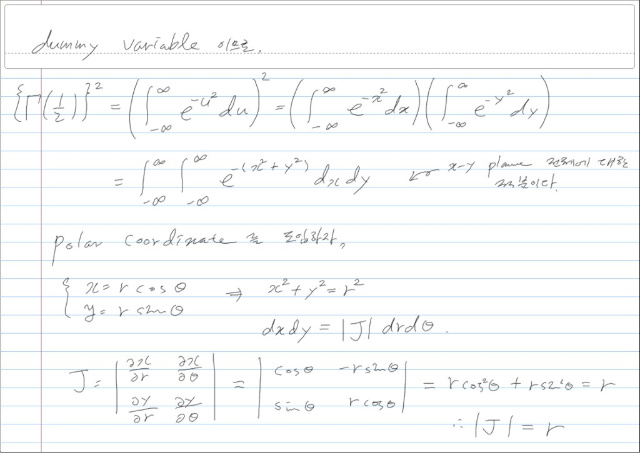 dummy variable 이므로,
{Γ(1/2)}² = (∫_{-∞}^{∞} e^{-u²} du)² = (∫_{-∞}^{∞} e^{-x²} dx)(∫_{-∞}^{∞} e^{-y²} dy)
= ∫_{-∞}^{∞} ∫_{-∞}^{∞} e^{-(x²+y²)} dx dy ← x-y plane 전체에 대한
적분이다.
polar coordinate 를 도입하자,
{ x = r cos θ ⇒ x² + y² = r²
y = r sin θ
dxdy = |J| drdθ.
J = | ∂x/∂r ∂x/∂θ ; ∂y/∂r ∂y/∂θ | = | cosθ -r sinθ ; sinθ r cosθ | = r cos²θ + r sin²θ = r
∴ |J| = r